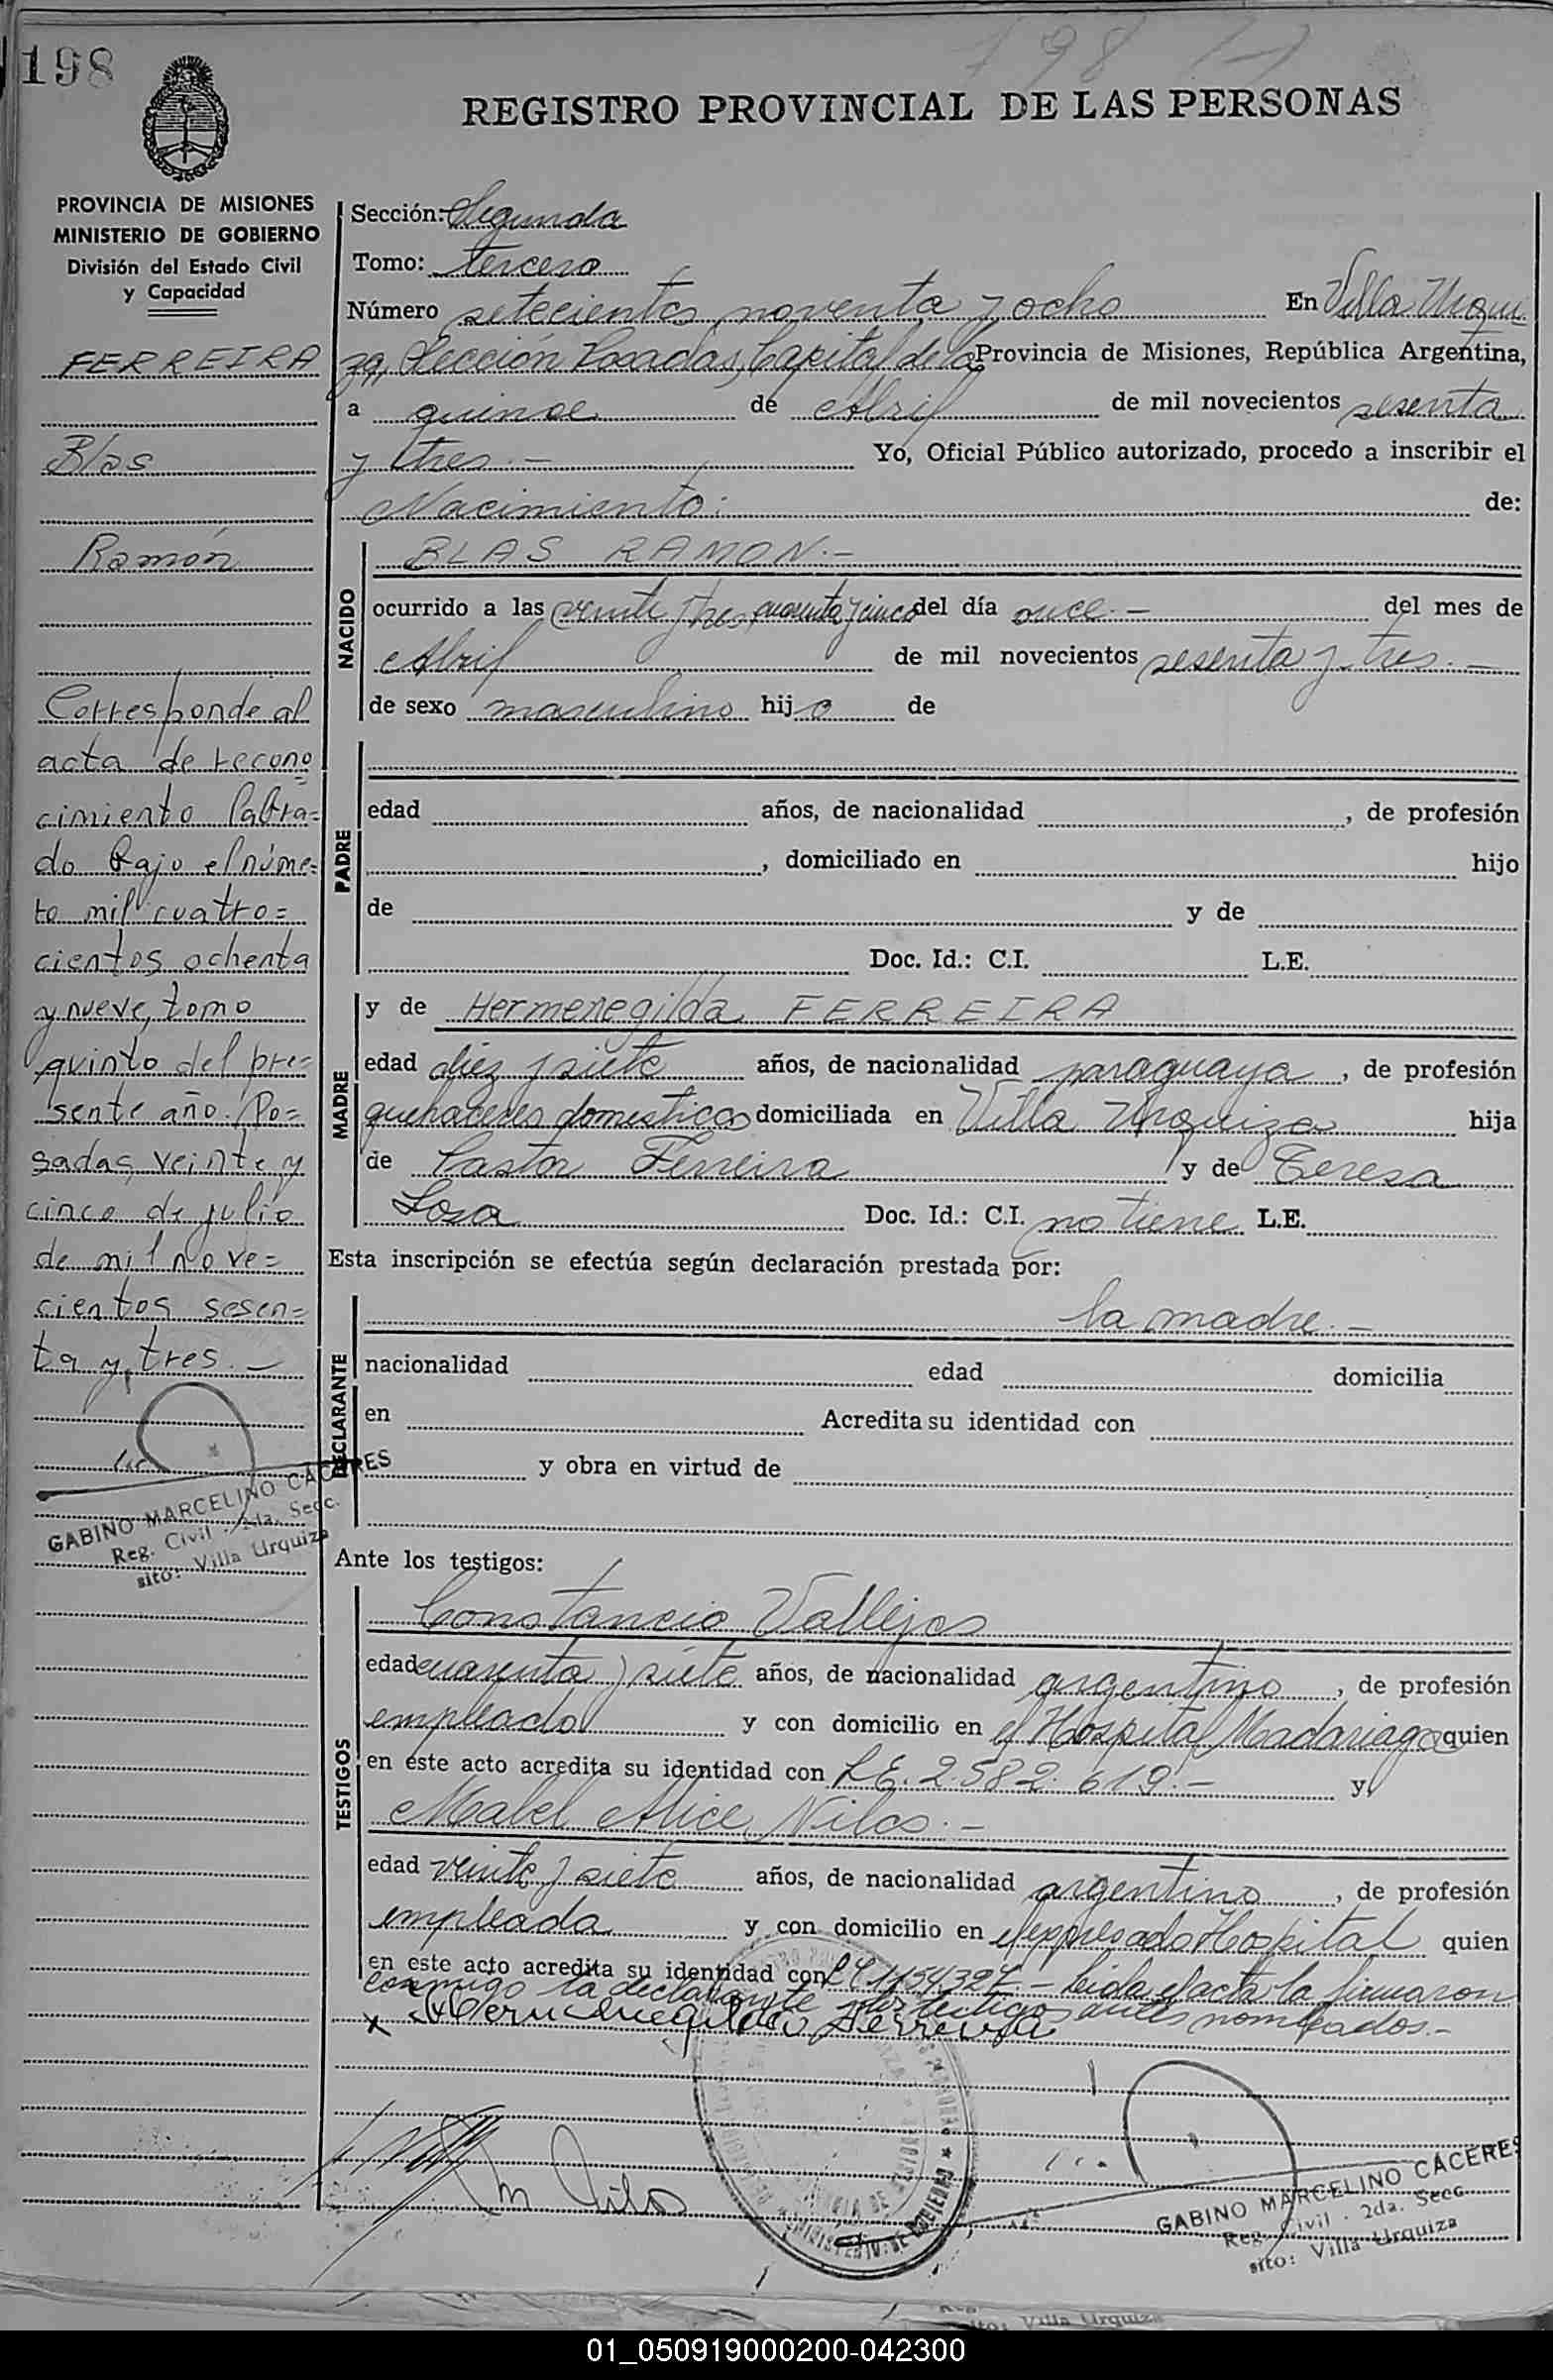 198
798
REGISTRO PROVINCIAL DE LAS PERSONAS
PROVINCIA DE MISIONES
MINISTERIO DE GOBIERNO
División del Estado Civil
y Capacidad
FERREIRA
Blas
Ramón
Corresponde al
acta de recono=
cimiento labra=
do bajo el núme=
ro mil cuatro=
cientos ochenta
y nueve, tomo
quinto del pre=
sente año. Po=
sadas, veinte y
cinco de julio
de mil nove=
cientos sesen=
ta y tres.-
GABINO MARCELINO CACERES
Reg. Civil . 2da. Secc.
sito: Villa Urquiza
Sección: Segunda
Tomo: tercero
Número setecientos noventa y ocho En Villa Urqui
za, Sección Posadas, Capital de la Provincia de Misiones, República Argentina,
a quince de Abril de mil novecientos sesenta
y tres.- Yo, Oficial Público autorizado, procedo a inscribir el
Nacimiento: de:
NACIDO
BLAS RAMON.-
ocurrido a las veinte y tres, cuarenta y cinco del día once.- del mes de
Abril de mil novecientos sesenta y tres.-
de sexo masculino hijo de
PADRE
edad años, de nacionalidad , de profesión
, domiciliado en hijo
de y de
Doc. Id.: C.I. L.E.
MADRE
y de Hermenegilda FERREIRA
edad diez y siete años, de nacionalidad paraguaya, de profesión
quehaceres domesticos domiciliada en Villa Urquiza hija
de Pastor Ferreira y de Teresa
Sosa Doc. Id.: C.I. no tiene L.E.
Esta inscripción se efectúa según declaración prestada por:
DECLARANTE
la madre.-
nacionalidad edad domicilia
en Acredita su identidad con
y obra en virtud de
Ante los testigos:
TESTIGOS
Constancio Vallejos
edad cuarenta y siete años, de nacionalidad argentino, de profesión
empleado y con domicilio en el Hospital Madariaga quien
en este acto acredita su identidad con L.E. 2.582.619.- y
Mabel Alice Nilos.-
edad veinte y siete años, de nacionalidad argentina, de profesión
empleada y con domicilio en el expresado Hospital quien
en este acto acredita su identidad con LC 1154.327 - Leida el acta la firmaron
conmigo la declarante y los testigos antes nombrados.-
x Hermenegilda Ferreira
GABINO MARCELINO CACERES
Reg. Civil . 2da. Secc.
sito: Villa Urquiza
Villa Urquiza
01_050919000200-042300